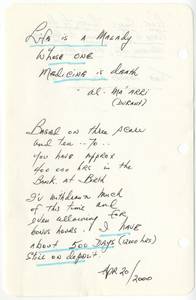 Life is a Malady
Whose one
Medicine is death
- al-Ma'arri
(Durant)
Based on three score
and ten -- 70 --
you have approx
400 000 hrs in the
Bank at Birth
I'v withdrawn much
of this time and
even allowing for
bonus hours. I have
about 500 Days (12000 hrs)
still on deposit.
Apr 20/2000